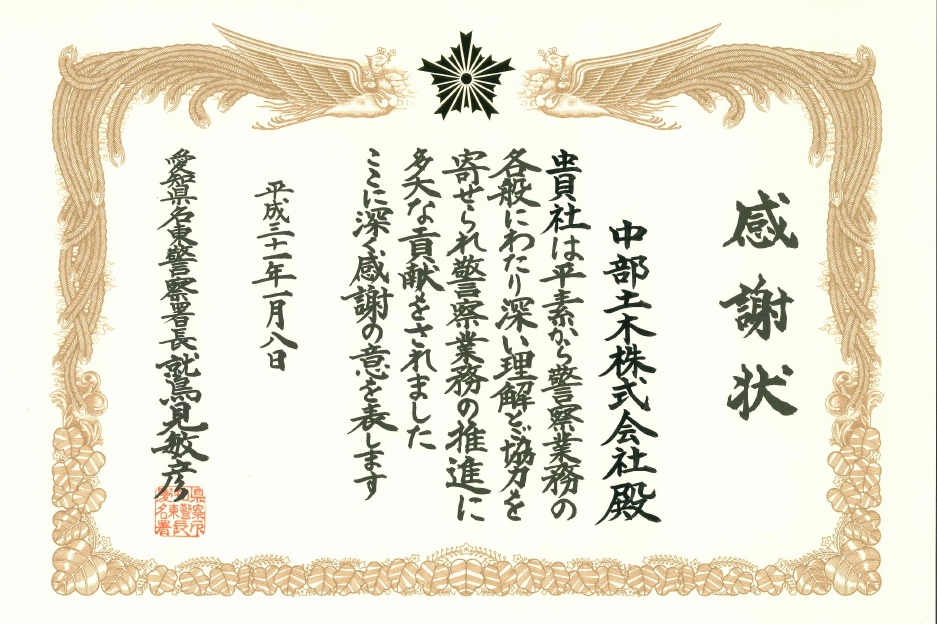 感謝状
中部土木株式会社殿
貴社は平素から警察業務の
各般にわたり深い理解とご協力を
寄せられ警察業務の推進に
多大な貢献をされました
ここに深く感謝の意を表します
平成三十一年一月八日
愛知県名東警察署長鷲見敏彦